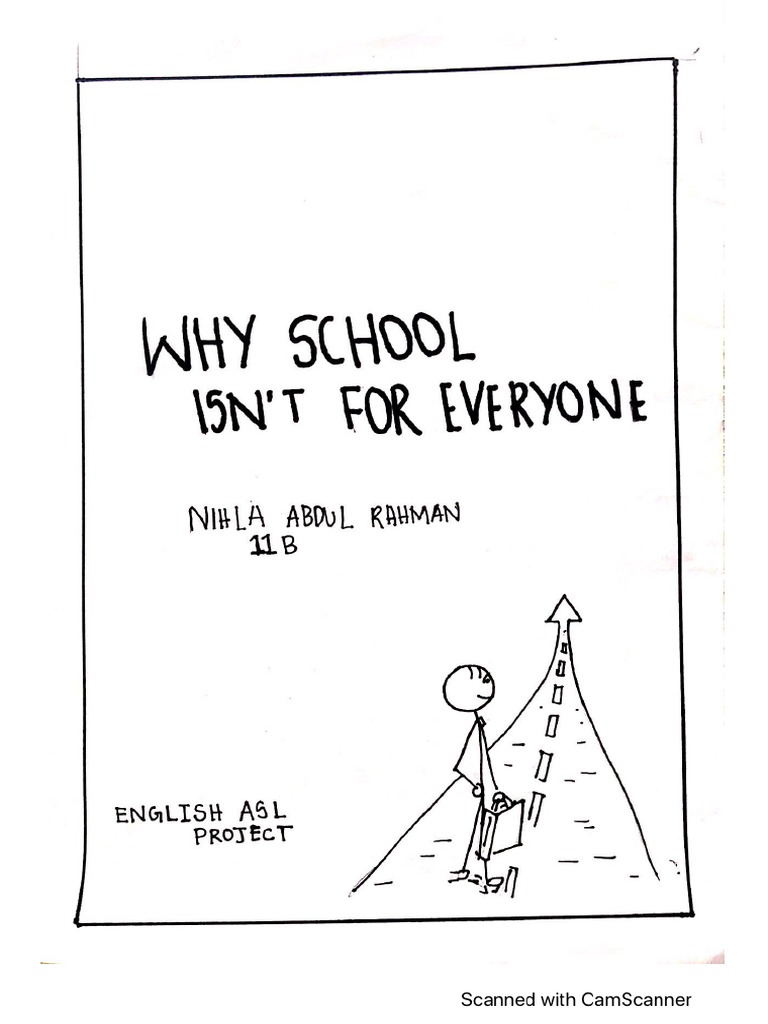 WHY SCHOOL
ISN'T FOR EVERYONE
NIHLA ABDUL RAHMAN
11B
ENGLISH ASL
PROJECT
Scanned with CamScanner